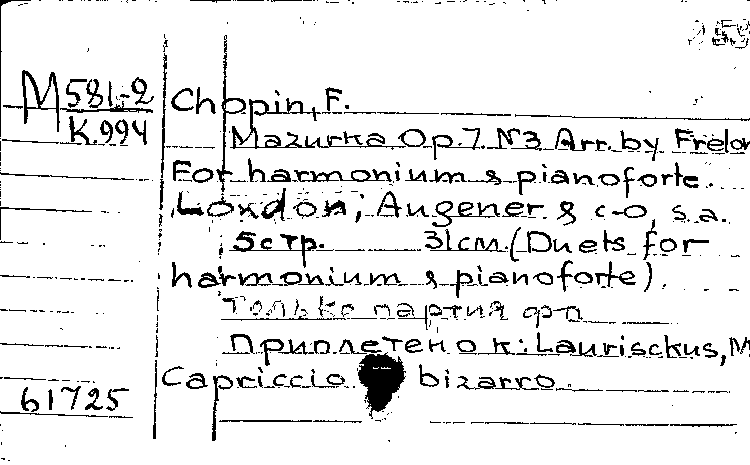 253
M 581-2
K.994
Chopin, F.
Mazurka Op.7 N3 Arr. by Frelon
For harmonium & pianoforte.
London; Augener & c-o, s.a.
5 стр. 31см. (Duets for
harmonium & pianoforte).
Только партия ф-п
Приплетено к: Laurisckus, M
Capriccio bizarro.
61725